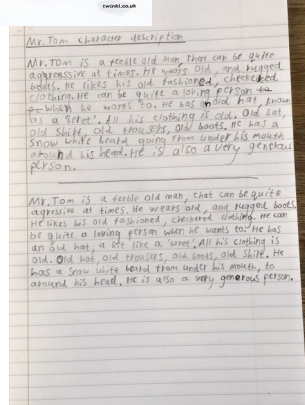 twinkl.co.uk
Mr. Tom character description
Mr. Tom is a feeble old man, that can be quite
aggressive at times. He wears old, and rugged
boots. He likes his old fashioned, checkered
clothing. He can be quite a loving person to
when he wants to. He has an old hat, known
as a 'beret'. All his clothing is old. Old hat,
old shirt, old trousers, old boots. He has a
snow white beard going from under his mouth
around his head. He is also a very generous
person.
Mr. Tom is a feeble old man, that can be quite
agressive at times. He wears old, and rugged boots.
He likes his old fashioned, checkered clothing. He can
be quite a loving person when he wants to. He has
an old hat, a bit like a 'beret'. All his clothing is
old. Old hat, old trousers, old boots, old shirt. He
has a snow white beard from under his mouth, to
around his head. He is also a very generous person.